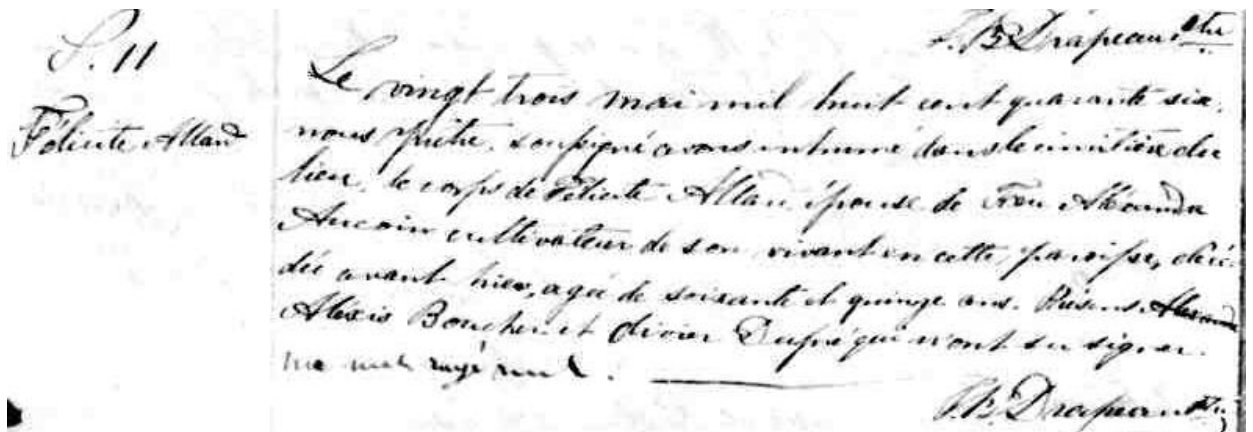 J. B. Drapeau Ptre
S. 11
Félicité Allard
Le vingt trois mai mil huit cent quarante six,
nous prêtre soussigné avons inhumé dans le cimetière du
lieu, le corps de Félicité Allard épouse de Feu Alexandre
Aucoin cultivateur de son vivant en cette paroisse, décé-
dée avant hier, agée de soixante et quinze ans. Présens
Alexis Boucher et Olivier Dupré qui n'ont su signer.
un mot rayé nul.
J. B. Drapeau Ptre